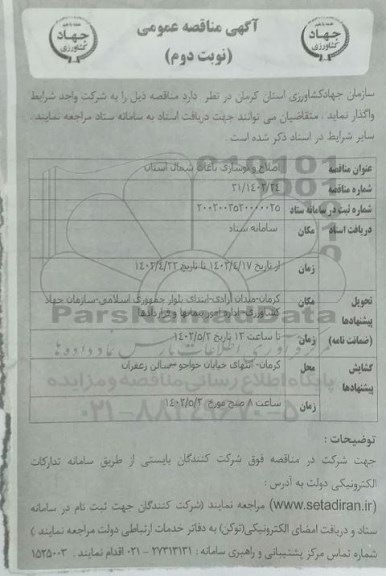 آگهی مناقصه عمومی
(نوبت دوم)
جهاد کشاورزی
جهاد کشاورزی
سازمان جهادکشاورزی استان کرمان در نظر دارد مناقصه ذیل را به شرکت واجد شرایط
واگذار نماید . متقاضیان می توانند جهت دریافت اسناد به سامانه ستاد مراجعه نمایند .
سایر شرایط در اسناد ذکر شده است .
عنوان مناقصه اصلاح و نوسازی باغات شمال استان
شماره مناقصه ۲۱/۱۴۰۳/۲۴
شماره ثبت در سامانه ستاد
دریافت اسناد مکان سامانه ستاد
زمان از تاریخ ۱۴۰۳/۴/۱۷ تا تاریخ ۱۴۰۳/۴/۲۳
تحویل پیشنهادها (ضمانت نامه) مکان کرمان-میدان آزادی-ابتدای بلوار جمهوری اسلامی-سازمان جهاد
کشاورزی- اداره امور پیمانها و قراردادها
زمان تا ساعت ۱۳ تاریخ ۱۴۰۳/۵/۲
گشایش پیشنهادها محل کرمان- انتهای خیابان خواجو-سالن زعفران
زمان ساعت ۸ صبح مورخ ۱۴۰۳/۵/۳
ParsNamadData
پایگاه اطلاع رسانی مناقصه و مزایده
۰۲۱-۸۸۳۴۹۶۷۰-۵
توضیحات :
جهت شرکت در مناقصه فوق شرکت کنندگان بایستی از طریق سامانه تدارکات
الکترونیکی دولت به آدرس :
(www.setadiran.ir) مراجعه نمایند (شرکت کنندگان جهت ثبت نام در سامانه
ستاد و دریافت امضای الکترونیکی(توکن) به دفاتر خدمات ارتباطی دولت مراجعه نمایند )
شماره تماس مرکز پشتیبانی و راهبری سامانه : ۲۷۳۱۳۱۳۱ - ۰۲۱ اقدام نمایند . ۱۵۲۵۰۰۳